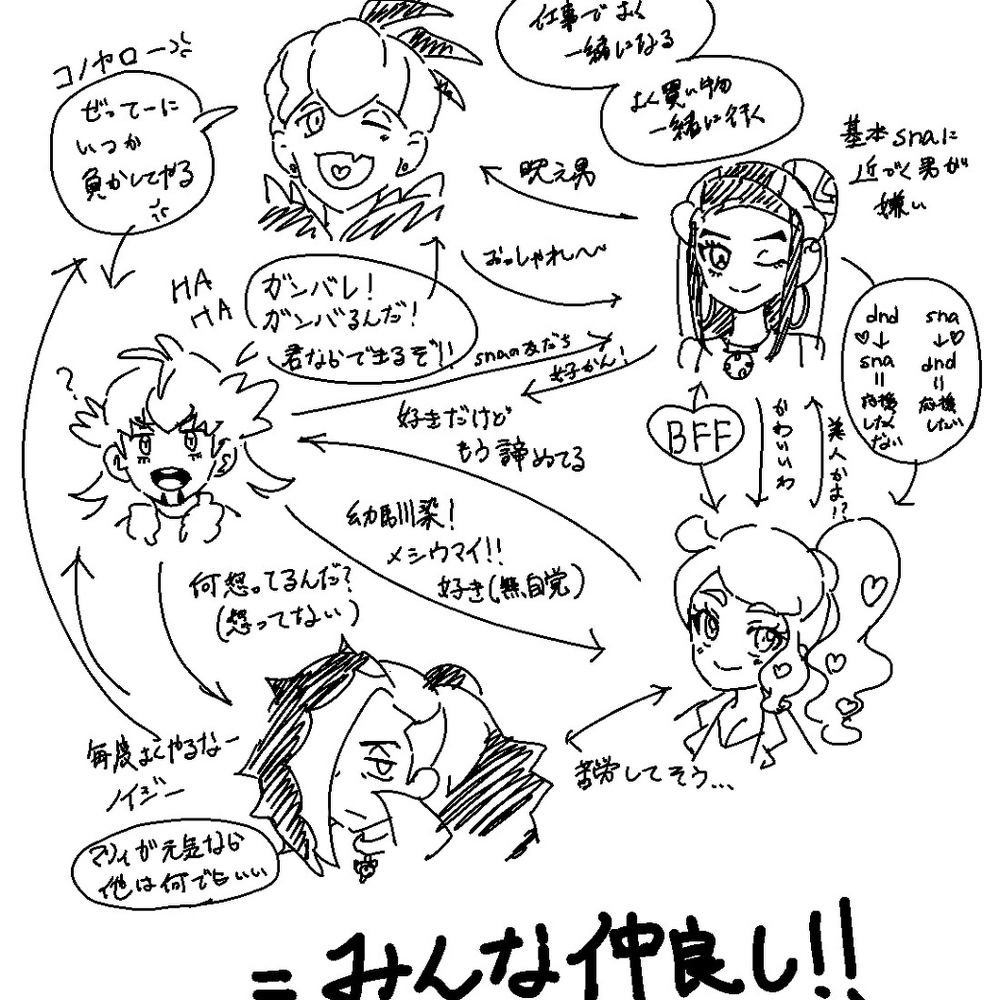 仕事でよく
一緒になる
よく買い物
一緒に行く
コノヤロー
ぜってーに
いつか
負かしてやる
基本snaに
近づく男が
嫌い
映え男
おっしゃれ〜
HA
HA
ガンバレ!
ガンバるんだ!
君ならできるぞ!!
snaの友だち
好かん!
dnd
↓
sna
=
応援
したく
ない
sna
↓
dnd
=
応援
したい
?
好きだけど
もう諦めてる
BFF
かわいいわ
美人かよ!?
幼馴染!
メシウマイ!!
好き(無自覚)
何怒ってるんだ?
(怒ってない)
毎度よくやるなー
ノイジー
苦労してそう…
マリィが元気なら
他は何でもいい
=みんな仲良し!!